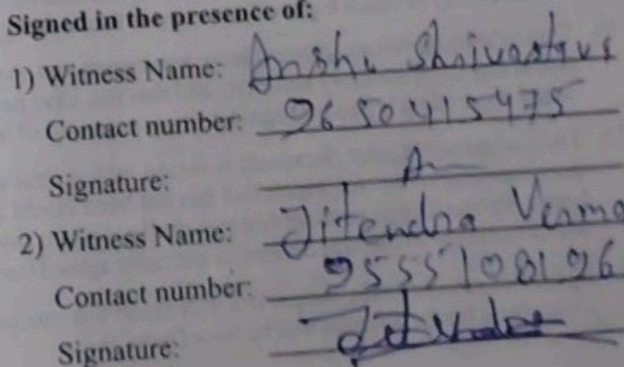 Signed in the presence of:
1) Witness Name: Anshu Shrivastava
Contact number: 9650415475
Signature:
2) Witness Name: Jitendra Verma
Contact number: 9555108196
Signature: